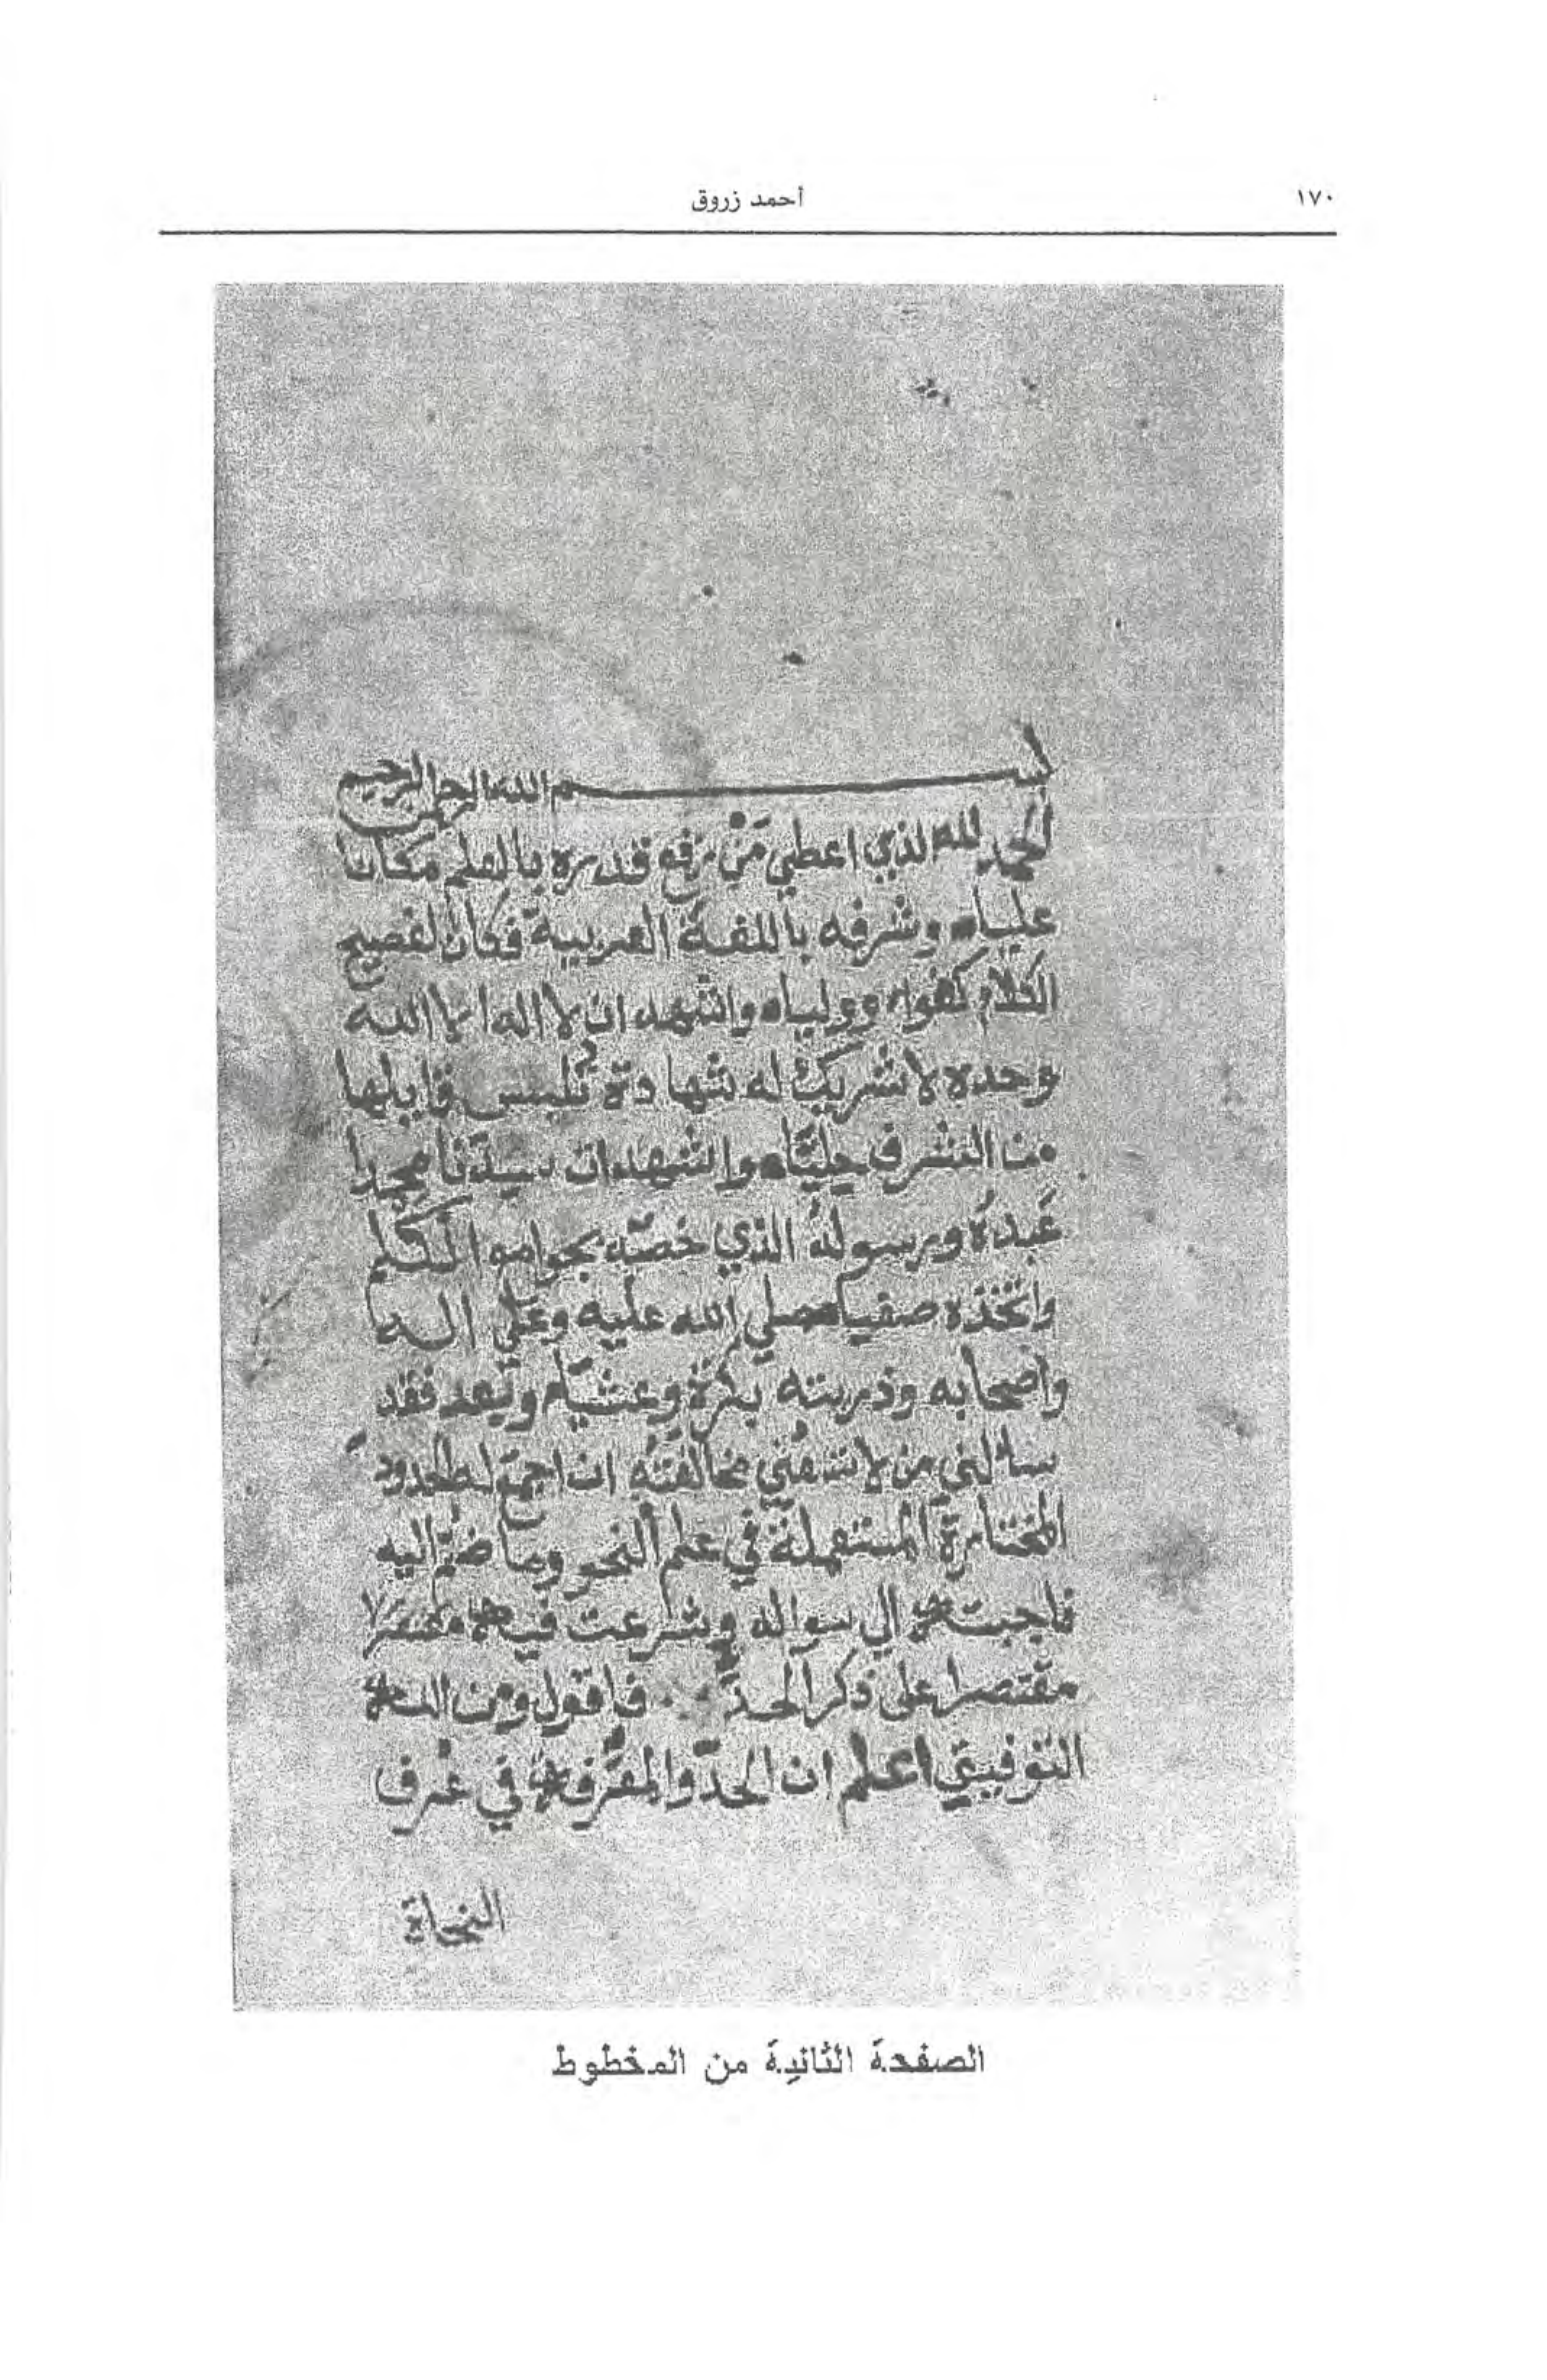 ١٧٠
أحمد زروق
بسم الله الرحمن الرحيم
الحمد لله الذي اعطي من رفع قدره بالعلم مكانا
عليا وشرفه باللغة العربية فكان لفصيح
الكلام كفوا ووليا واشهد ان لا اله الا الله
وحده لا شريك له شهادة تلبس قايلها
من الشرف حليا واشهد ان سيدنا محمدا
عبده ورسوله الذي خصه بجوامع الكلم
واتخذه صفيا صلي الله عليه وعلي اله
واصحابه وذريته بكرة وعشيا وبعد فقد
سالني من لا تسعني مخالفته ان اجمع له الحدود
المختارة المستعملة في علم النحو وما ضم اليه
فاجبته الي سواله وشرعت فيه مختصرا
مقتصرا على ذكر الحد فاقول ومن الله
التوفيق اعلم ان الحد والمعرف في عرف
النحاة
الصفحة الثانية من المخطوط